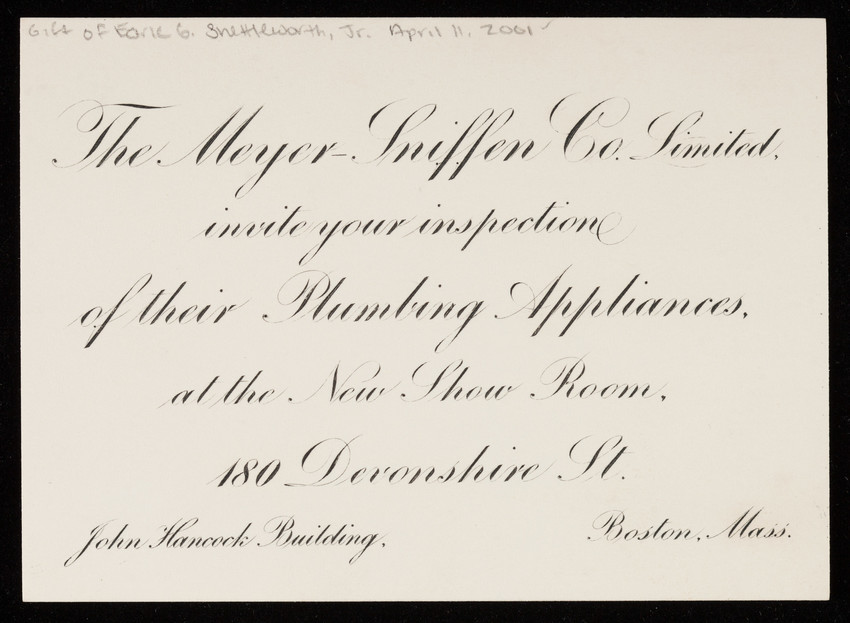 Gift of Earle G. Shettleworth, Jr. April 11, 2001
The Meyer-Sniffen Co. Limited,
invite your inspection
of their Plumbing Appliances,
at the New Show Room,
180 Devonshire St.
John Hancock Building,
Boston, Mass.